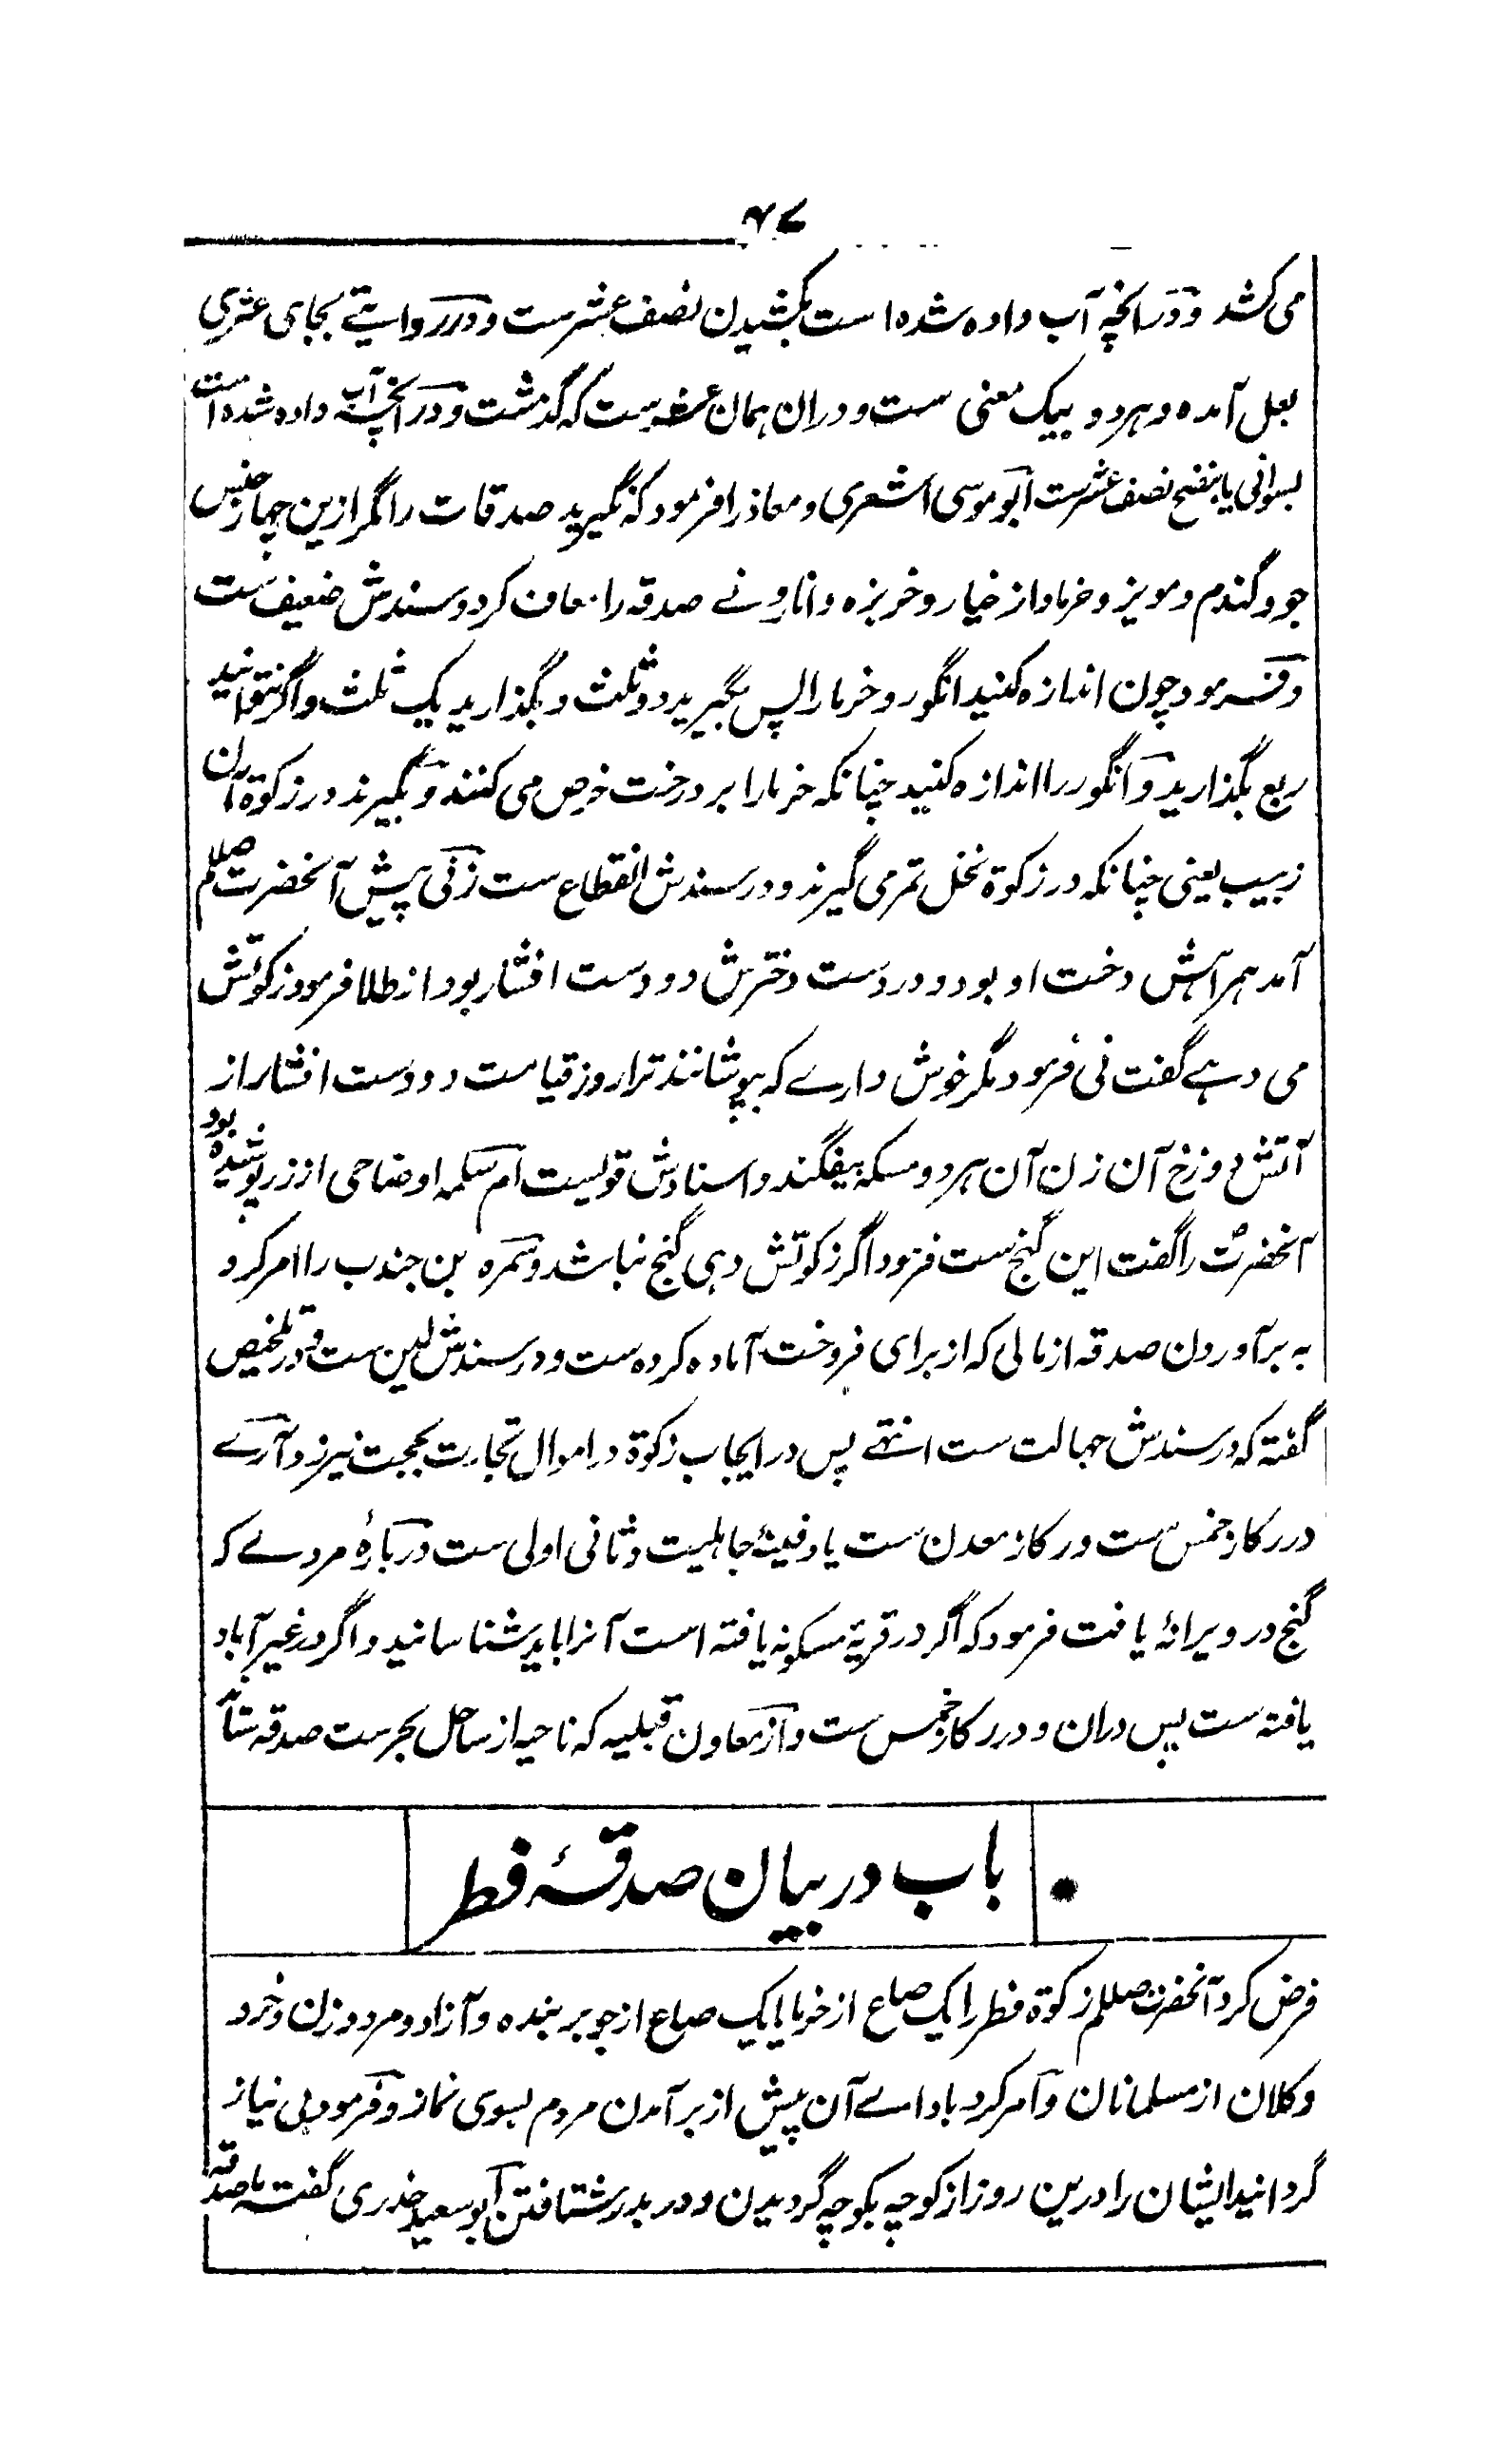 ۶۷
می کشد و در آنچه آب داده شده است بکشیدن نصف عشرست و در روایتے بجای عثری
بعل آمده و هر دو بیک معنی ست و دران همان عشرست که گذشت و در آنچه آب داده شده است
بسوانی یا بنضح نصف عشرست ابو موسی اشعری و معاذ را فرمود که نگیرید صدقات را مگر ازین چهار جنس
جو و گندم و مویز و خرما و از خیار و خربزه و انار و نے صدقه را معاف کرد و سندش ضعیف ست
و فرمود چون اندازه کنید انگور و خرما را پس بگیرید دو ثلث و بگذارید یک ثلث و اگر نتوانید
ربع بگذارید و انگور را اندازه کنید چنانکه خرما را بر درخت خرص می کنند و بگیرند در زکوة آن
زبیب یعنی چنانکه در زکوة نخل تمر می گیرند و در سندش انقطاع ست زنی پیش آنحضرت صللم
آمد همراهش دخت او بود و در دست دخترش دو دست افشار بود از طلا فرمود زکوتش
می دهے گفت نی فرمود مگر خوش دارے که بپوشانند ترا روز قیامت دو دست افشار از
آتش دوزخ آن زن آن هر دو مسکه بیفگند و اسنادش قویست ام سلمه اوضاحی از زر پوشیده بود
آنحضرت را گفت این گنج ست فرمود اگر زکوتش دهی گنج نباشد و سمره بن جندب را امر کرد
به برآوردن صدقه از مالی که از برای فروخت آماده کرده ست و در سندش لین ست و در تلخیص
گفته که در سندش جهالت ست انتهے پس در ایجاب زکوة در اموال تجارت بحجت نیرزد آرے
در رکاز خمس ست و رکاز معدن ست یا دفینۂ جاهلیت و ثانی اولی ست در بارۂ مردے که
گنج در ویرانۂ یافت فرمود که اگر در قریۂ مسکونه یافته است آنرا باید شناسانید و اگر در غیر آباد
یافته ست پس دران و در رکاز خمس ست و از معاون قبلیه که ناحیه از ساحل بحرست صدقه ستاند
باب در بیان صدقۂ فطر
فرض کرد آنحضرت صللم زکوة فطر را یک صاع از خرما یا یک صاع از جو بر بنده و آزاد و مرد و زن و خرد
و کلان از مسلمانان و امر کرد باداے آن پیش از برآمدن مردم بسوی نماز و فرمود بی نیاز
گردانید ایشان را درین روز از کوچه بکوچه گردیدن و در بدر شتافتن ابو سعید خدری گفته ما صدقه